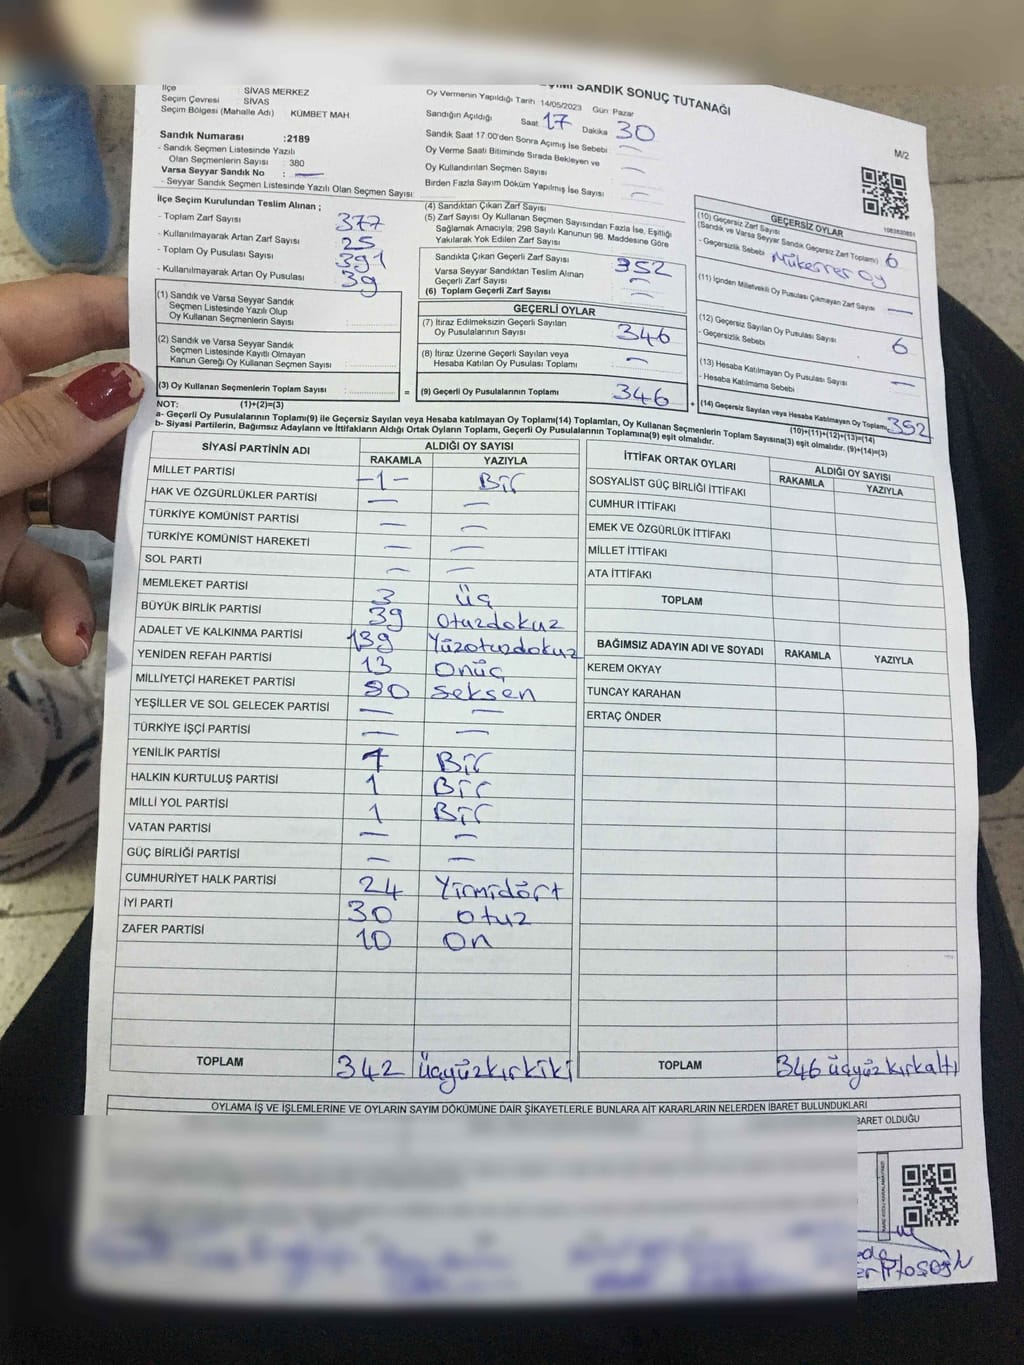 SANDIK SONUÇ TUTANAĞI
İlçe : SİVAS MERKEZ
Seçim Çevresi : SİVAS
Seçim Bölgesi (Mahalle Adı) : KÜMBET MAH
Sandık Numarası :2189
- Sandık Seçmen Listesinde Yazılı
Olan Seçmenlerin Sayısı : 380
Varsa Seyyar Sandık No : —
- Seyyar Sandık Seçmen Listesinde Yazılı Olan Seçmen Sayısı:
Oy Vermenin Yapıldığı Tarih 14/05/2023 Gün Pazar
Sandığın Açıldığı Saat 17 Dakika 30
Sandık Saat 17:00'den Sonra Açılmış İse Sebebi —
Oy Verme Saati Bitiminde Sırada Bekleyen ve
Oy Kullandırılan Seçmen Sayısı —
Birden Fazla Sayım Döküm Yapılmış İse Sayısı —
M/2
İlçe Seçim Kurulundan Teslim Alınan ;
- Toplam Zarf Sayısı 377
- Kullanılmayarak Artan Zarf Sayısı 25
- Toplam Oy Pusulası Sayısı 391
- Kullanılmayarak Artan Oy Pusulası 39
(1) Sandık ve Varsa Seyyar Sandık
Seçmen Listesinde Yazılı Olup
Oy Kullanan Seçmenlerin Sayısı :
(2) Sandık ve Varsa Seyyar Sandık
Seçmen Listesinde Kayıtlı Olmayan
Kanun Gereği Oy Kullanan Seçmen Sayısı :
(3) Oy Kullanan Seçmenlerin Toplam Sayısı :
(4) Sandıktan Çıkan Zarf Sayısı
(5) Zarf Sayısı Oy Kullanan Seçmen Sayısından Fazla İse, Eşitliği
Sağlamak Amacıyla; 298 Sayılı Kanunun 98. Maddesine Göre
Yakılarak Yok Edilen Zarf Sayısı
Sandıkta Çıkan Geçerli Zarf Sayısı 352
Varsa Seyyar Sandıktan Teslim Alınan
Geçerli Zarf Sayısı —
(6) Toplam Geçerli Zarf Sayısı —
GEÇERLİ OYLAR
(7) İtiraz Edilmeksizin Geçerli Sayılan
Oy Pusulalarının Sayısı 346
(8) İtiraz Üzerine Geçerli Sayılan veya
Hesaba Katılan Oy Pusulası Toplamı —
= (9) Geçerli Oy Pusulalarının Toplamı 346
GEÇERSİZ OYLAR
(10) Geçersiz Zarf Sayısı
(Sandık ve Varsa Seyyar Sandık Geçersiz Zarf Toplamı) 6
- Geçersizlik Sebebi Mükerrer oy
(11) İçinden Milletvekili Oy Pusulası Çıkmayan Zarf Sayısı —
(12) Geçersiz Sayılan Oy Pusulası Sayısı 6
- Geçersizlik Sebebi
(13) Hesaba Katılmayan Oy Pusulası Sayısı —
- Hesaba Katılmama Sebebi
+ (14) Geçersiz Sayılan veya Hesaba Katılmayan Oy Toplamı 352
(10)+(11)+(12)+(13)=(14)
NOT: (1)+(2)=(3)
a- Geçerli Oy Pusulalarının Toplamı(9) ile Geçersiz Sayılan veya Hesaba katılmayan Oy Toplamı(14) Toplamları, Oy Kullanan Seçmenlerin Toplam Sayısına(3) eşit olmalıdır. (9)+(14)=(3)
b- Siyasi Partilerin, Bağımsız Adayların ve İttifakların Aldığı Ortak Oyların Toplamı, Geçerli Oy Pusulalarının Toplamına(9) eşit olmalıdır.
SİYASİ PARTİNİN ADI ALDIĞI OY SAYISI
RAKAMLA YAZIYLA
MİLLET PARTİSİ -1- Bir
HAK VE ÖZGÜRLÜKLER PARTİSİ — —
TÜRKİYE KOMÜNİST PARTİSİ — —
TÜRKİYE KOMÜNİST HAREKETİ — —
SOL PARTİ — —
MEMLEKET PARTİSİ 3 üç
BÜYÜK BİRLİK PARTİSİ 39 otuzdokuz
ADALET VE KALKINMA PARTİSİ 139 Yüzotuzdokuz
YENİDEN REFAH PARTİSİ 13 Onüç
MİLLİYETÇİ HAREKET PARTİSİ 80 Seksen
YEŞİLLER VE SOL GELECEK PARTİSİ — —
TÜRKİYE İŞÇİ PARTİSİ — —
YENİLİK PARTİSİ 1 Bir
HALKIN KURTULUŞ PARTİSİ 1 Bir
MİLLİ YOL PARTİSİ 1 Bir
VATAN PARTİSİ — —
GÜÇ BİRLİĞİ PARTİSİ — —
CUMHURİYET HALK PARTİSİ 24 Yirmidört
İYİ PARTİ 30 otuz
ZAFER PARTİSİ 10 On
TOPLAM 342 üçyüzkırkiki
İTTİFAK ORTAK OYLARI ALDIĞI OY SAYISI
RAKAMLA YAZIYLA
SOSYALİST GÜÇ BİRLİĞİ İTTİFAKI
CUMHUR İTTİFAKI
EMEK VE ÖZGÜRLÜK İTTİFAKI
MİLLET İTTİFAKI
ATA İTTİFAKI
TOPLAM
BAĞIMSIZ ADAYIN ADI VE SOYADI RAKAMLA YAZIYLA
KEREM OKYAY
TUNCAY KARAHAN
ERTAÇ ÖNDER
TOPLAM 346 üçyüzkırkaltı
OYLAMA İŞ VE İŞLEMLERİNE VE OYLARIN SAYIM DÖKÜMÜNE DAİR ŞİKAYETLERLE BUNLARA AİT KARARLARIN NELERDEN İBARET BULUNDUKLARI
BARET OLDUĞU